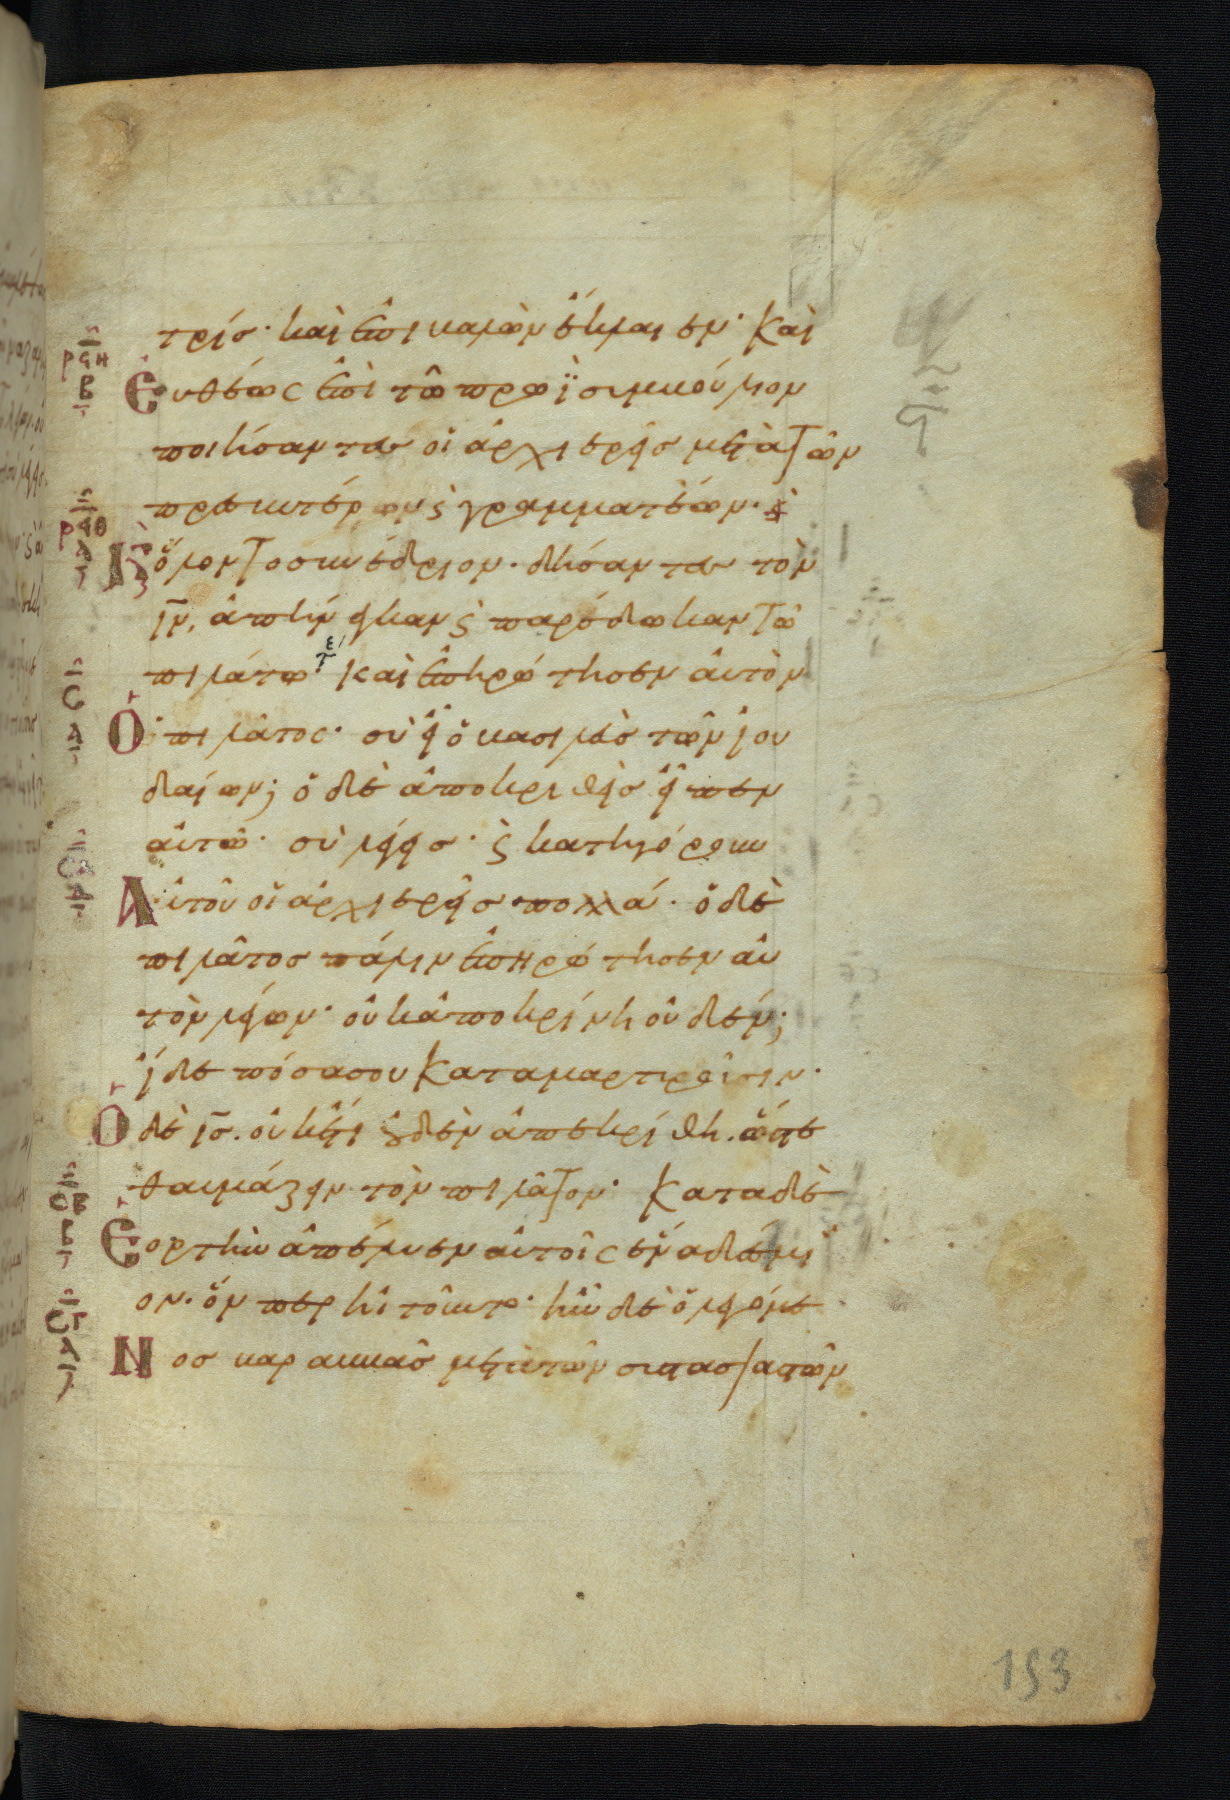 τρίσ· καὶ ἐπιβαλὼν ἔκλαιεν· Καὶ
Εὐθέως ἐπὶ τὸ πρωῒ συμβούλιον
ποιήσαντεσ οἱ ἀρχιερεῖσ μετὰ τῶν
πρεσβυτέρων ϛ γραμματέων· ϛ
ὅλον το συνέδριον· δήσαντεσ τὸν
ιν̅, ἀπήνεγκαν ϛ παρέδωκαν τῶ
πιλάτω· καὶ ἐπηρώτησεν αὐτὸν
Ὁ πιλᾶτος· σὺ εἶ ὁ βασιλεὺσ τῶν ἰου
δαίων; ὁ δὲ ἀποκριθεὶσ εἶπεν
αὐτῶ· σὺ λέγεισ· ϛ κατηγόρουν
Αὐτοῦ οἱ ἀρχιερεῖσ πολλά· ὁ δὲ
πιλᾶτοσ πάλιν ἐπηρώτησεν αὐ
τὸν λέγων· οὐκ ἀποκρίνη οὐδέν;
ἴδε πόσα σου καταμαρτυροῦσιν·
Ὁ δὲ ισ̅. οὐκέτι οὐδὲν ἀπεκρίθη. ὥστε
θαυμάζειν τὸν πιλᾶτον· Κατα δὲ
Ἑορτὴν ἀπέλυεν αὐτοῖς ἕνα δέσμι
ον· ὅν περ ἠτοῦντο· ἦν δὲ ὁ λεγόμε
Νοσ βαραββᾶσ μετὰ τῶν συστασιαστῶν
ρϟη
β
ρϟθ
δ
ς
α
ς
α
ςα
δ
ςβ
β
ςγ
δ
153